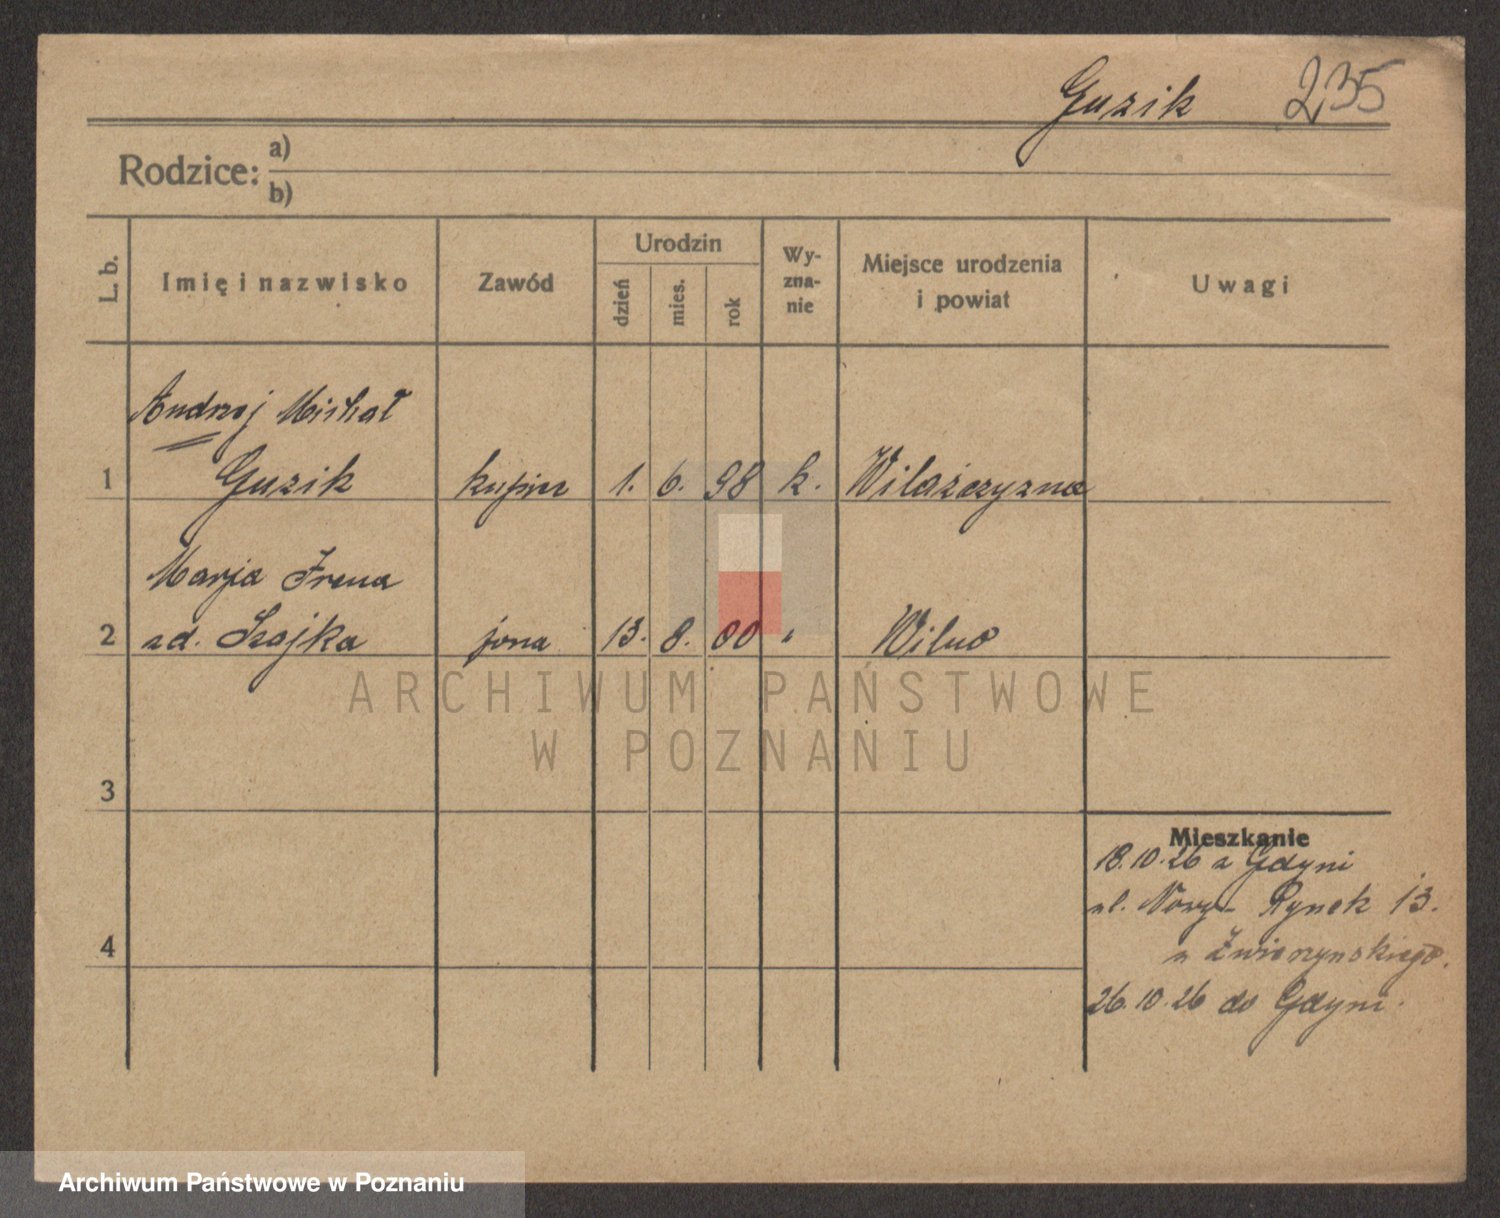 Guzik 235
Rodzice: a)
b)
L. b. Imię i nazwisko Zawód Urodzin dzień mies. rok Wy-zna-nie Miejsce urodzenia i powiat Uwagi
Andrzej Michał
1 Guzik kupiec 1. 6. 98 k.
Marja Irena
2 zd. Szojka żona 13. 8. 00 " Wilno
ARCHIWUM PAŃSTWOWE
W POZNANIU
3
Mieszkanie
18.10.26 z Gdyni
ul. Nowy-Rynek 13.
u Zwierzynskiego.
4
26.10.26 do Gdyni.
Archiwum Państwowe w Poznaniu